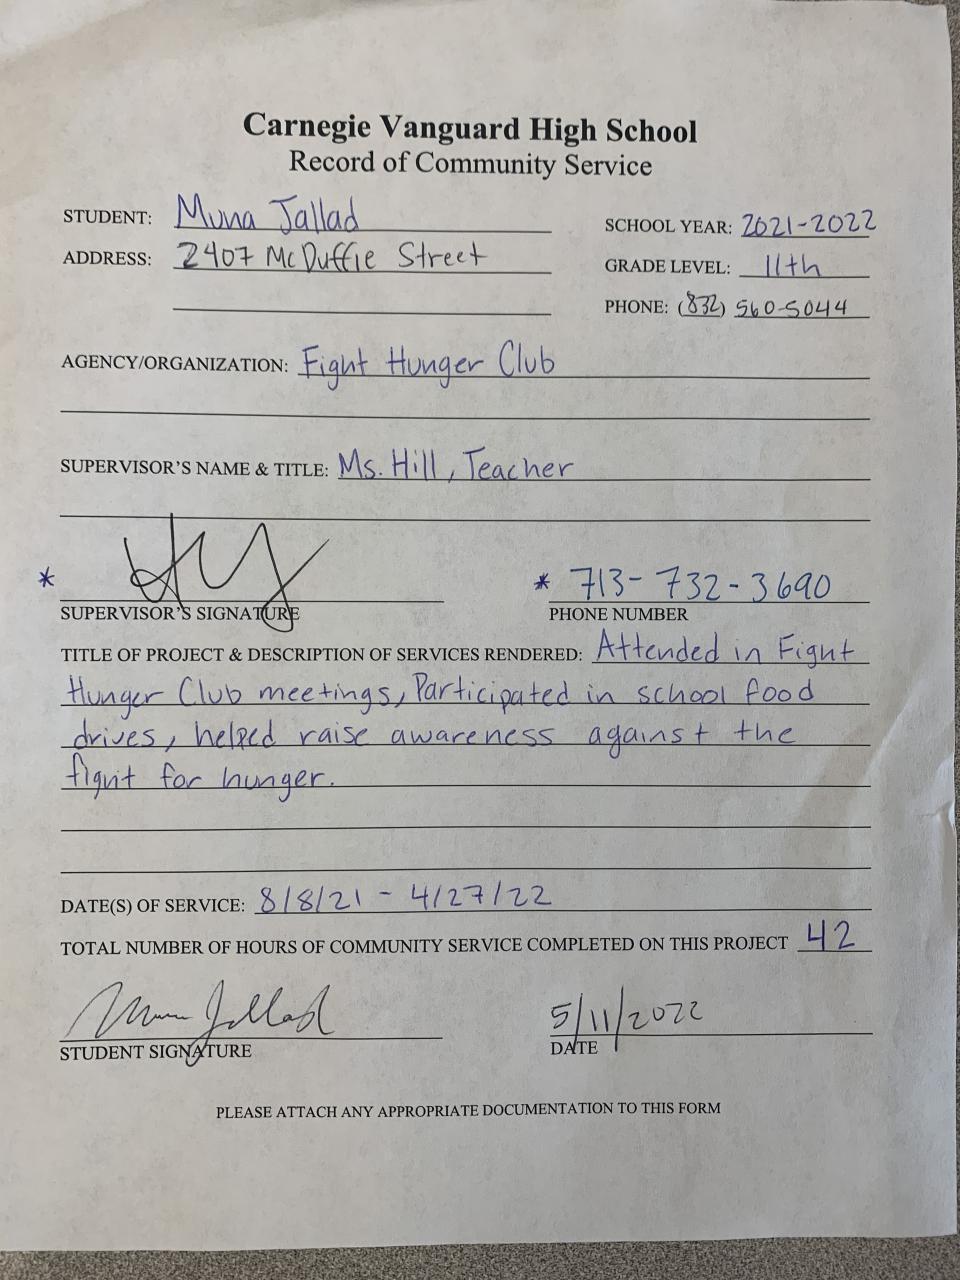 Carnegie Vanguard High School
Record of Community Service
STUDENT: Muna Jallad
SCHOOL YEAR: 2021-2022
ADDRESS: 2407 McDuffie Street
GRADE LEVEL: 11th
PHONE: (832) 560-5044
AGENCY/ORGANIZATION: Fight Hunger Club
SUPERVISOR'S NAME & TITLE: Ms. Hill, Teacher
* * 713-732-3690
SUPERVISOR'S SIGNATURE PHONE NUMBER
TITLE OF PROJECT & DESCRIPTION OF SERVICES RENDERED: Attended in Fight
Hunger Club meetings, Participated in school food
drives, helped raise awareness against the
fight for hunger.
DATE(S) OF SERVICE: 8/8/21 - 4/27/22
TOTAL NUMBER OF HOURS OF COMMUNITY SERVICE COMPLETED ON THIS PROJECT 42
Muna Jallad 5/11/2022
STUDENT SIGNATURE DATE
PLEASE ATTACH ANY APPROPRIATE DOCUMENTATION TO THIS FORM